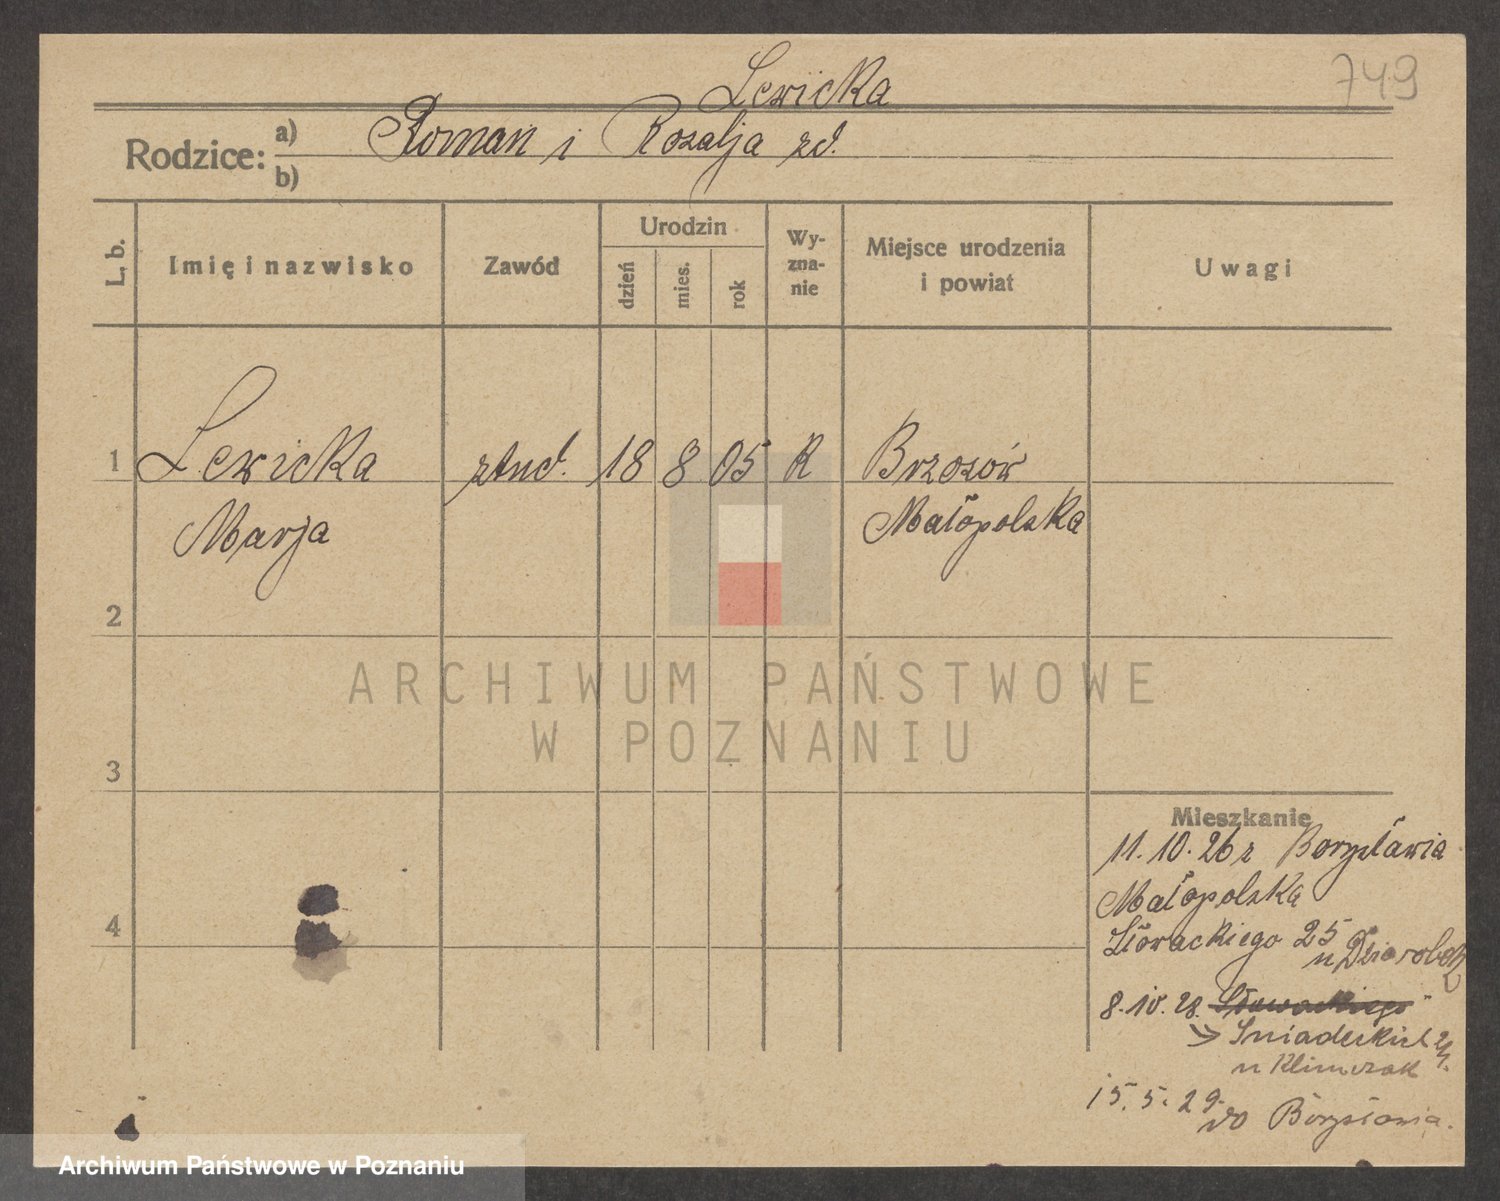 Lewicka
749
Rodzice: a) Roman i Rozalja zd.
b)
L. b. Imię i nazwisko Zawód Urodzin dzień mies. rok Wyznanie Miejsce urodzenia i powiat Uwagi
1 Lewicka stud. 18 8 05 R Brzozów
Marja Małopolska
2
3
Mieszkanie
11. 10. 26 z Borysławia
Małopolska
Słowackiego 25
u
4
8. 10. 28. Słowackiego
Śniadeckich
u Klimczak
15. 5. 29. do Borysławia.
ARCHIWUM PAŃSTWOWE
W POZNANIU
Archiwum Państwowe w Poznaniu